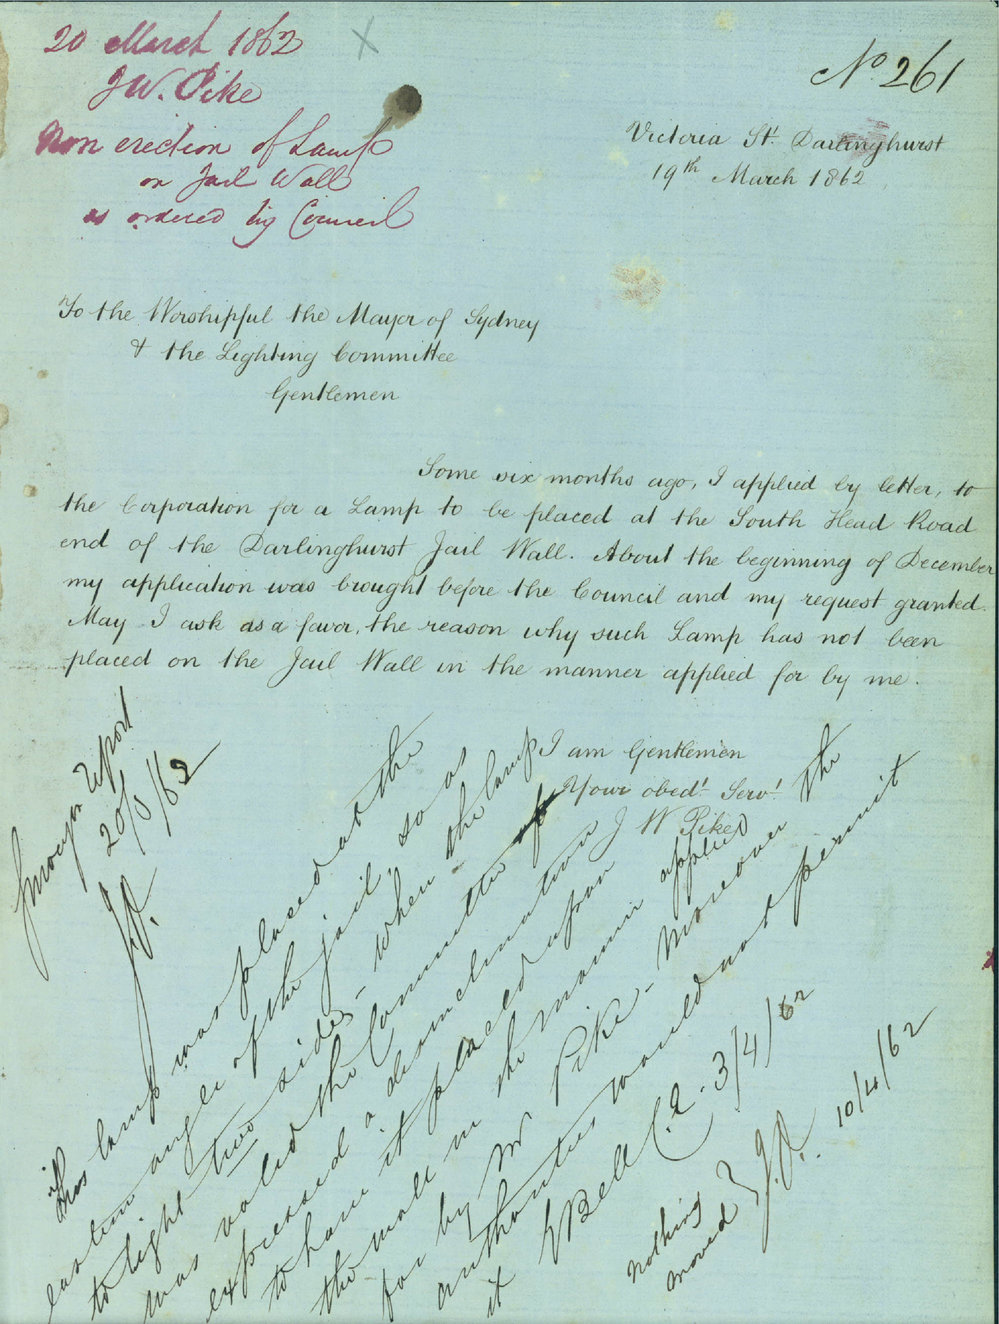 20 March 1862
J W. Pike
Non erection of Lamp
on Jail Wall
as ordered by Council
No 261
Victoria St. Darlinghurst
19th March 1862
To the Worshipful the Mayor of Sydney
& the Lighting Committee
Gentlemen
Some six months ago, I applied by letter, to
the Corporation for a Lamp to be placed at the South Head Road
end of the Darlinghurst Jail Wall. About the beginning of December
my application was brought before the Council and my request granted.
May I ask as a favor, the reason why such Lamp has not been
placed on the Jail Wall in the manner applied for by me.
I am Gentlemen
Your obedt. Servt.
J W Pike
Surveyor report
20/3/62
This lamp was placed at the
eastern angle of the jail, so as
to light two sides - when the lamp
was voted the Committee
expressed a determination
to have it placed upon
the wall in the manner applied
for by Mr Pike - Moreover the
authorities would not permit
it
E Bell C.E. 3/4/62
nothing
moved
10/4/62